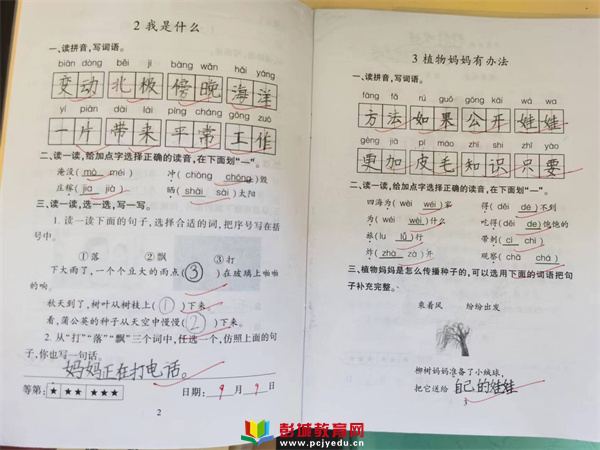 2 我是什么
一、读拼音,写词语。
biàn dòng běi jí bàng wǎn hǎi yáng
变动 北极 傍晚 海洋
yí piàn dài lái píng cháng gōng zuò
一片 带来 平常 工作
二、读一读,给加点字选择正确的读音,在下面划“—”。
淹没( mò méi ) 冲( chòng chōng )毁
庄稼( jia jià ) 晒( shài sài )太阳
三、读一读,选一选,写一写。
1. 读一读下面的句子,选择合适的词,把序号写在括
号中。
①落 ②飘 ③打
下大雨了,一个个豆大的雨点( ③ )在玻璃上啪啪
的响。
秋天到了,树叶从树枝上( ① )下来。
看,蒲公英的种子从天空中慢慢( ② )下来。
2. 从“打”“落”“飘”三个词中,任选一个,仿照上面的句
子,你也写一句话。
妈妈正在打电话。
等第: ★ ★★ ★★★ 日期: 9 月 9 日
2
3 植物妈妈有办法
一、读拼音,写词语。
fāng fǎ rú guǒ gōng kāi wá wa
方法 如果 公开 娃娃
gèng jiā pí máo zhī shi zhǐ yào
更加 皮毛 知识 只要
二、读一读,给加点字选择正确的读音,在下面划“—”。
四海为( wèi wéi )家 得( děi dé )不到
为( wèi wéi )什么 吃得( děi de )饱饱的
旅( lu lǚ )行 带刺( cì chì )
炸( zhà zà )开 观察( chā chá )
三、植物妈妈是怎么传播种子的,可以选用下面的词语把句
子补充完整。
乘着风 纷纷出发
柳树妈妈准备了小绒球,
把它送给 自己的娃娃
3
彭城教育网
www.pcjyedu.cn